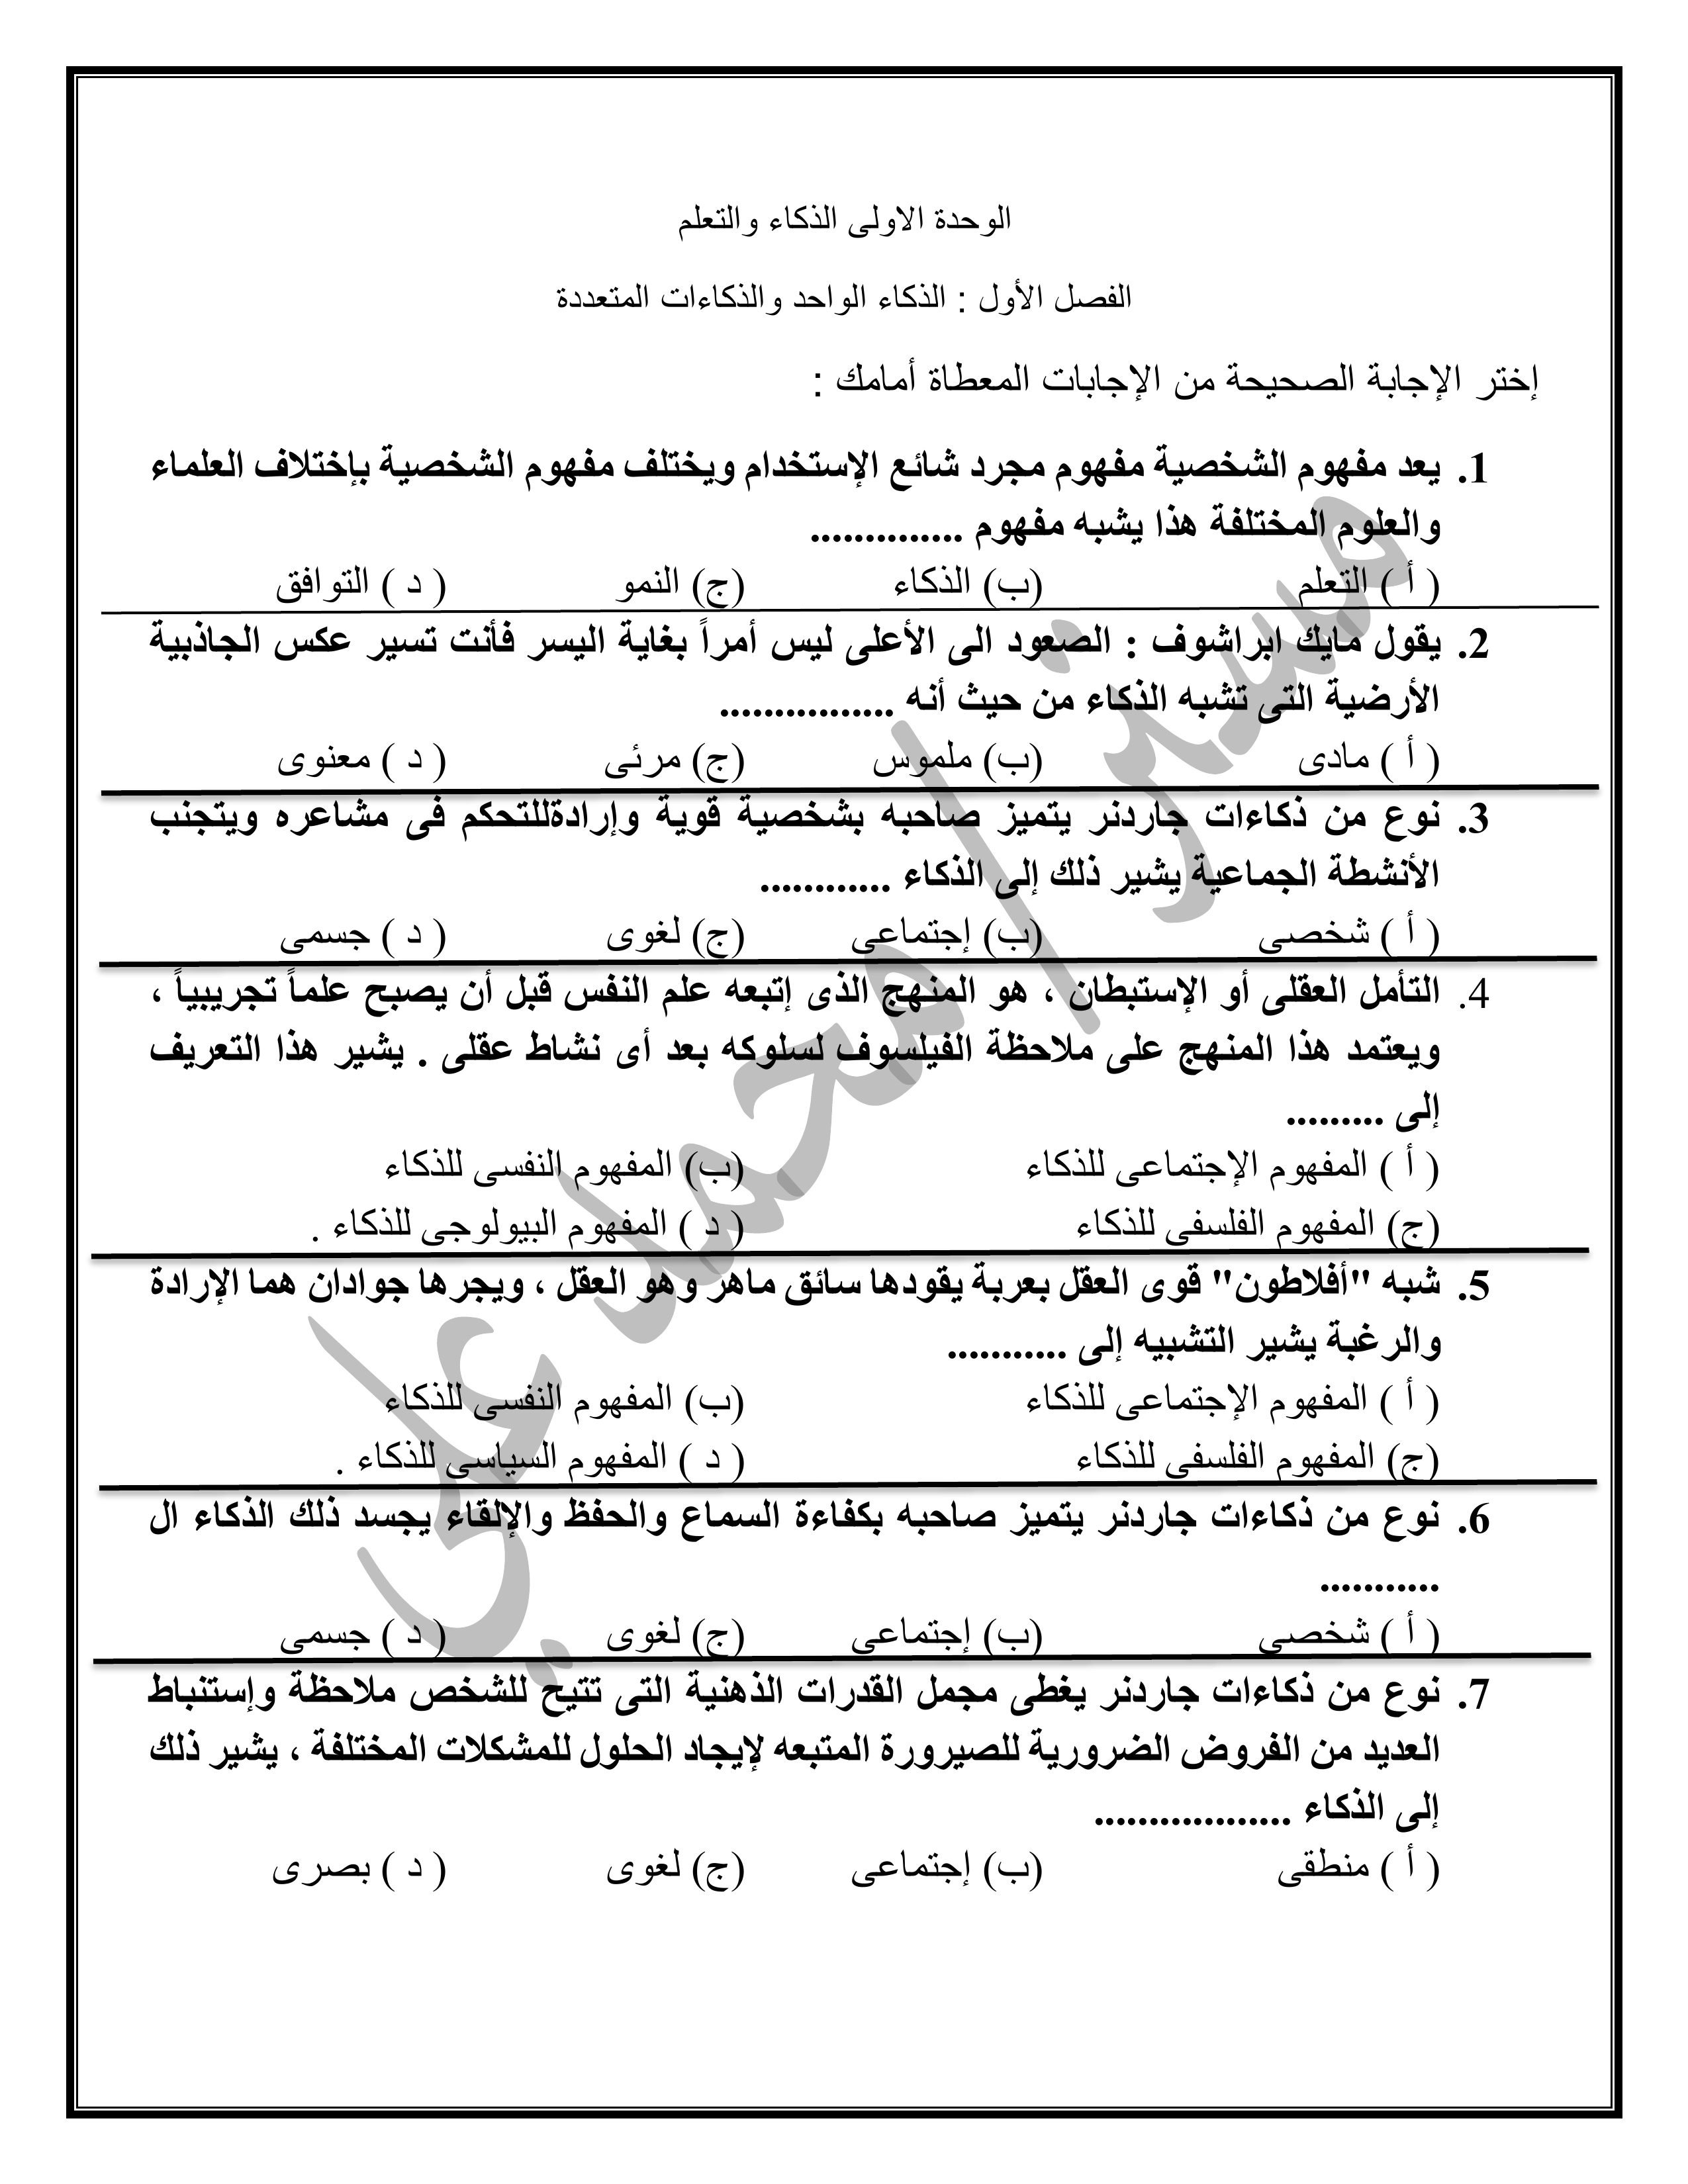 الوحدة الاولى الذكاء والتعلم
الفصل الأول : الذكاء الواحد والذكاءات المتعددة
إختر الإجابة الصحيحة من الإجابات المعطاة أمامك :
1. يعد مفهوم الشخصية مفهوم مجرد شائع الإستخدام ويختلف مفهوم الشخصية بإختلاف العلماء
والعلوم المختلفة هذا يشبه مفهوم ..............
( أ ) التعلم (ب) الذكاء (ج) النمو ( د ) التوافق
2. يقول مايك ابراشوف : الصعود الى الأعلى ليس أمراً بغاية اليسر فأنت تسير عكس الجاذبية
الأرضية التى تشبه الذكاء من حيث أنه ................
( أ ) مادى (ب) ملموس (ج) مرئى ( د ) معنوى
3. نوع من ذكاءات جاردنر يتميز صاحبه بشخصية قوية وإرادةللتحكم فى مشاعره ويتجنب
الأنشطة الجماعية يشير ذلك إلى الذكاء ............
( أ ) شخصى (ب) إجتماعى (ج) لغوى ( د ) جسمى
4. التأمل العقلى أو الإستبطان ، هو المنهج الذى إتبعه علم النفس قبل أن يصبح علماً تجريبياً ،
ويعتمد هذا المنهج على ملاحظة الفيلسوف لسلوكه بعد أى نشاط عقلى . يشير هذا التعريف
إلى .........
( أ ) المفهوم الإجتماعى للذكاء (ب) المفهوم النفسى للذكاء
(ج) المفهوم الفلسفى للذكاء ( د ) المفهوم البيولوجى للذكاء .
5. شبه "أفلاطون" قوى العقل بعربة يقودها سائق ماهر وهو العقل ، ويجرها جوادان هما الإرادة
والرغبة يشير التشبيه إلى ...........
( أ ) المفهوم الإجتماعى للذكاء (ب) المفهوم النفسى للذكاء
(ج) المفهوم الفلسفى للذكاء ( د ) المفهوم السياسى للذكاء .
6. نوع من ذكاءات جاردنر يتميز صاحبه بكفاءة السماع والحفظ والإلقاء يجسد ذلك الذكاء ال
...........
( أ ) شخصى (ب) إجتماعى (ج) لغوى ( د ) جسمى
7. نوع من ذكاءات جاردنر يغطى مجمل القدرات الذهنية التى تتيح للشخص ملاحظة وإستنباط
العديد من الفروض الضرورية للصيرورة المتبعه لإيجاد الحلول للمشكلات المختلفة ، يشير ذلك
إلى الذكاء ..................
( أ ) منطقى (ب) إجتماعى (ج) لغوى ( د ) بصرى
مستر / محمد علي